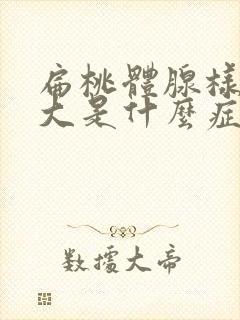 扁桃體腺樣
大是什麼症
數據大帝